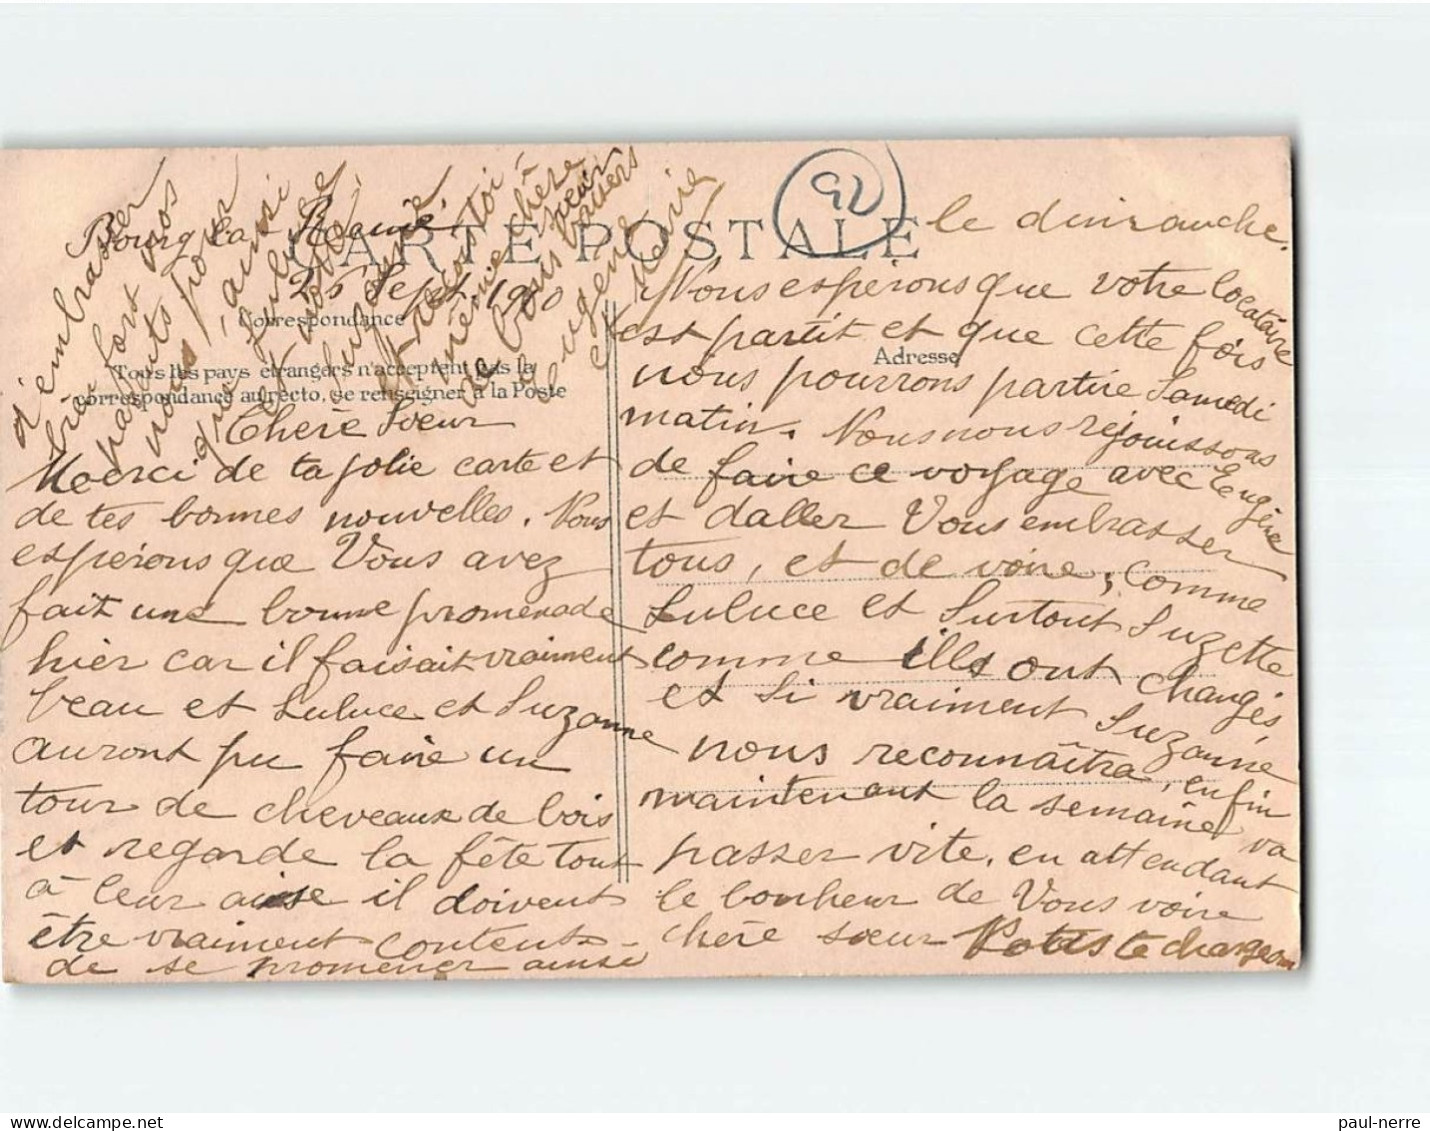 Bourg la Reine
25 Sept. 1910
CARTE POSTALE
Correspondance
Adresse
Tous les pays étrangers n'acceptent pas la
correspondance au recto, se renseigner à la Poste
Chère Sœur
Merci de ta jolie carte et
de tes bonnes nouvelles. Nous
espérons que Vous avez
fait une bonne promenade
hier car il faisait vraiment
beau et Luluce et Suzanne
auront pu faire un
tour de cheveaux de bois
et regarde la fête tout
à leur aise il doivent
être vraiment contents
de se promener ainsi
le dimanche.
Nous espérons que votre locataire
est partit et que cette fois
nous pourrons partir Samedi
matin. Nous nous rejouissons
de faire ce voyage avec Eugène
et daller Vous embrasser
tous, et de voire, comme
Luluce et Surtout Suzette
comme ills ont changés
et si vraiment Suzanne
nous reconnaîtra, enfin
maintenant la semaine va
passer vite. en attendant
le bonheur de Vous voire
chère sœur Nous te chargeons
d'embrasser
bien fort nos
parents pour
nous, ainsi
que Luluce
et
Suzanne
et reçois toi
même chère
sœur
de bons baisers
Eugène
Marie
92
paul-nerre